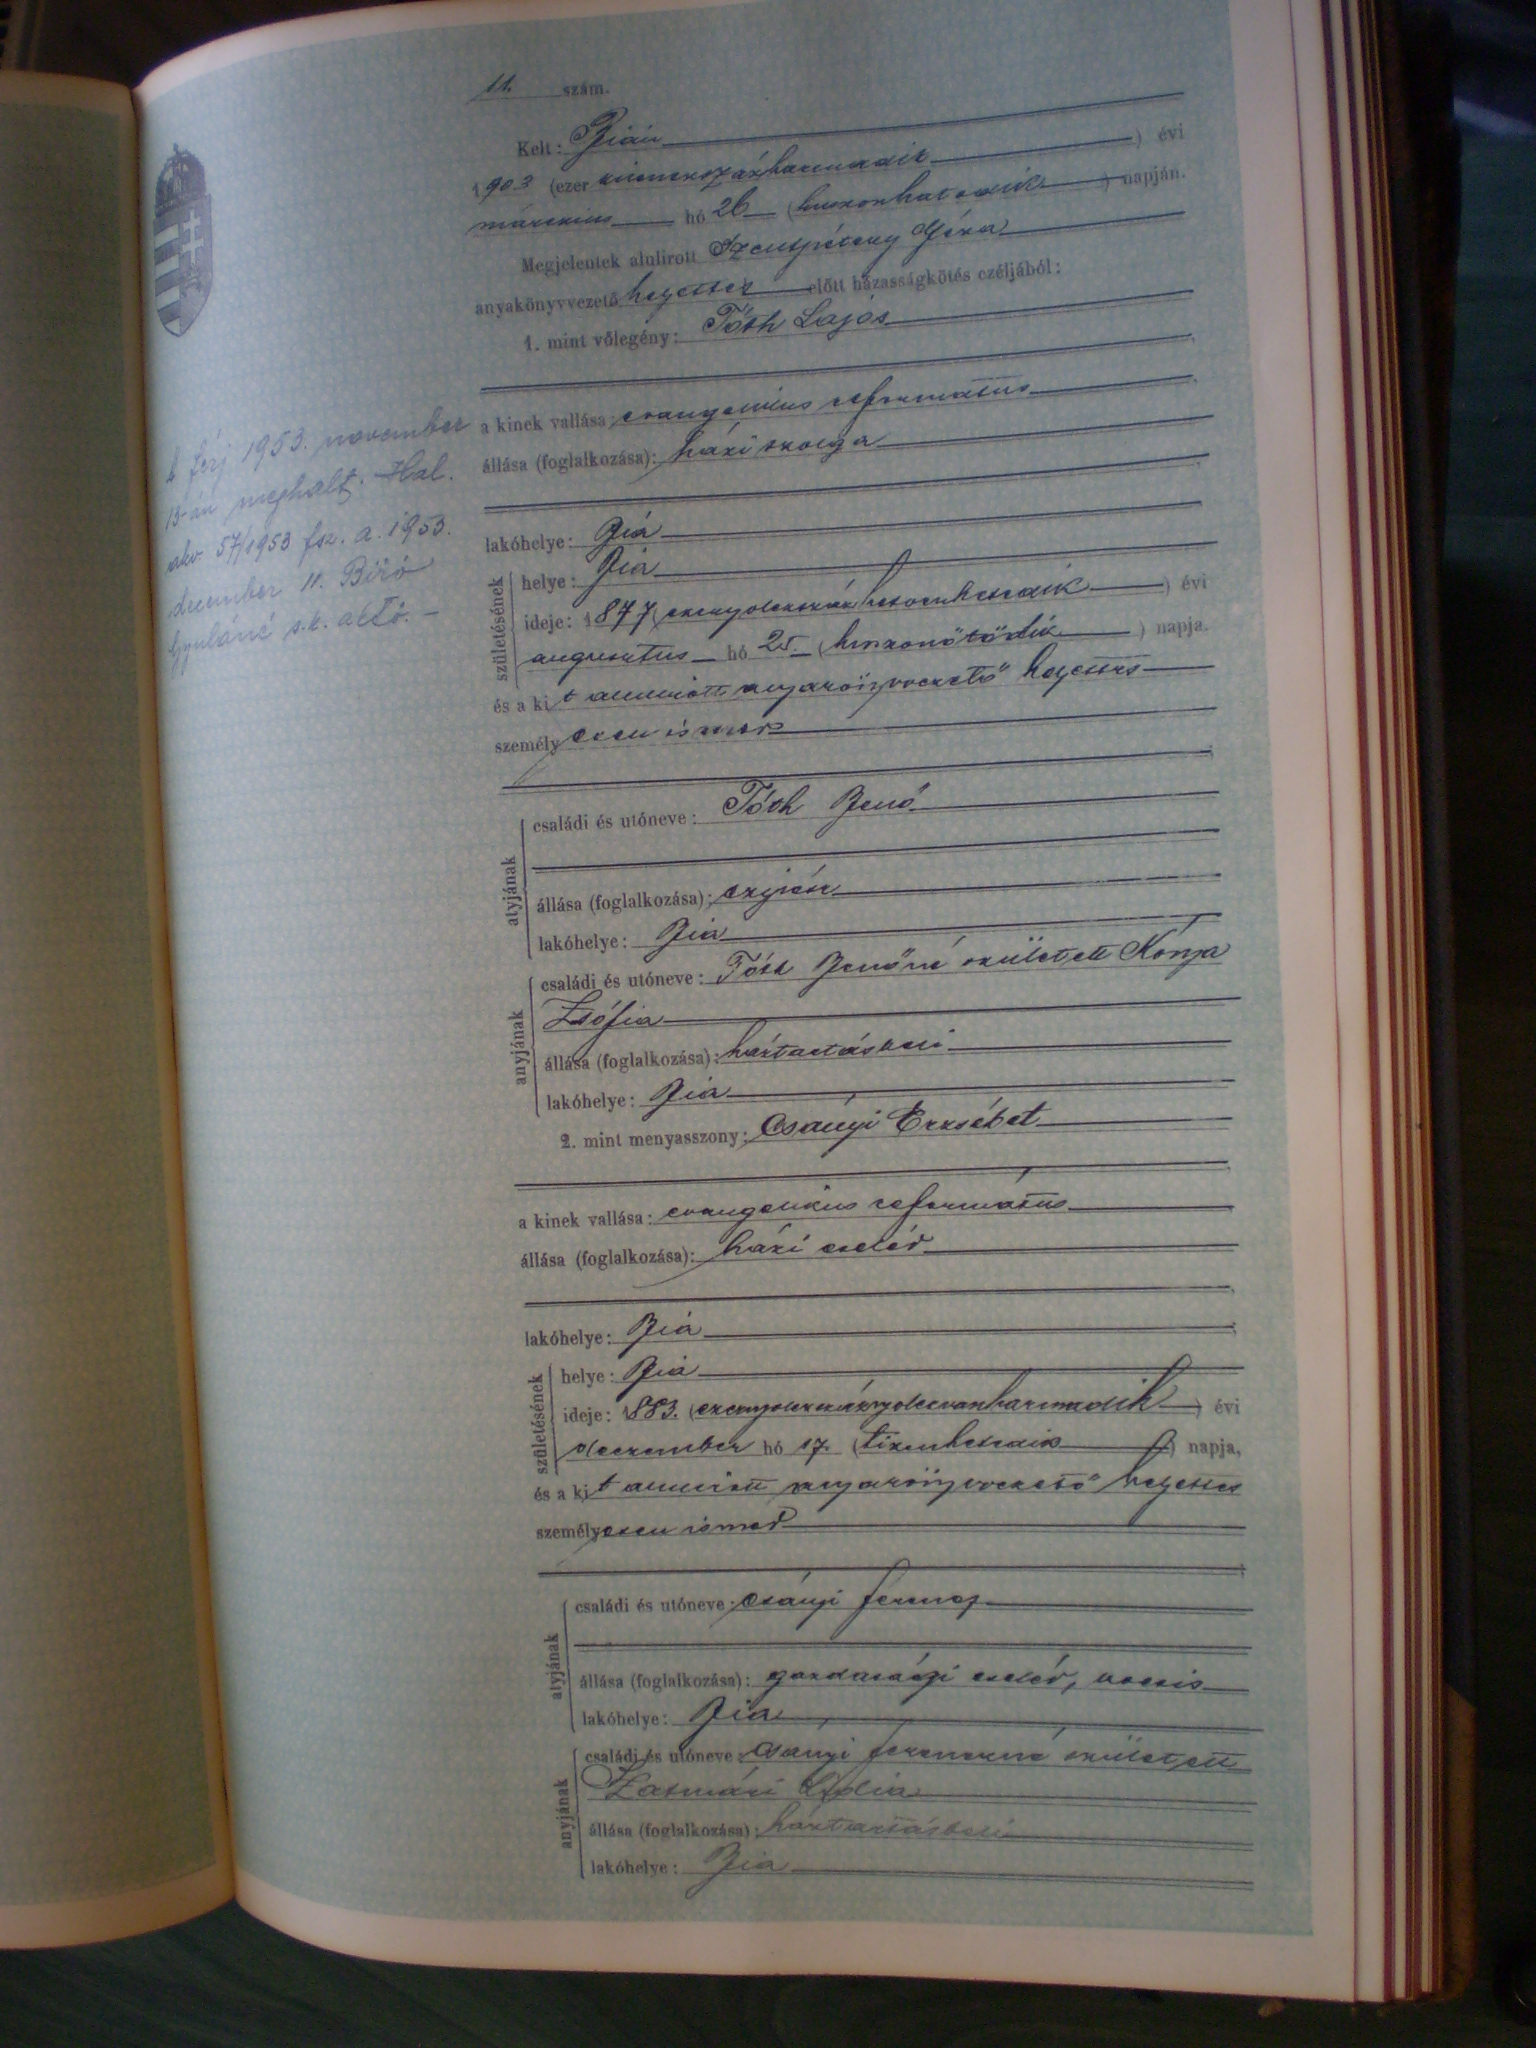 11. szám.
Kelt: Bián
1903 (ezerkilencszázharmadik) évi
március hó 26 (huszonhatodik) napján.
Megjelentek alulirott Szentpétery Géza
anyakönyvvezető helyettes előtt házasságkötés czéljából:
1. mint vőlegény: Tóth Lajos
a kinek vallása: evangelikus reformatus
állása (foglalkozása): házi szolga
lakóhelye: Bia
születésének
helye: Bia
ideje: 1877 (ezernyolczszázhetvenhetedik) évi
augusztus hó 25. (huszonötödik) napja.
és a kit alulirott anyakönyvvezető helyettes
személyesen ismer
atyjának
családi és utóneve: Tóth Jenő
állása (foglalkozása):
lakóhelye: Bia
anyjának
családi és utóneve: Tóth Jenőné született Kónya
Zsófia
állása (foglalkozása): háztartásbeli
lakóhelye: Bia
2. mint menyasszony: Csányi Erzsébet
a kinek vallása: evangelikus református
állása (foglalkozása): házi cseléd
lakóhelye: Bia
születésének
helye: Bia
ideje: 1883. (ezernyolczszáznyolczvanharmadik) évi
deczember hó 17. (tizenhetedik) napja,
és a kit alulirott anyakönyvvezető helyettes
személyesen ismer
atyjának
családi és utóneve: Csányi Ferencz
állása (foglalkozása): gazdasági cseléd, kocsis
lakóhelye: Bia
anyjának
családi és utóneve: Csányi Ferenczné született
Szatmári Lidia
állása (foglalkozása): háztartásbeli
lakóhelye: Bia
A férj 1953. november
13-án meghalt. Hal.
akv. 57/1953 fsz. a. 1953.
december 11. Biró
Gyuláné s.k.